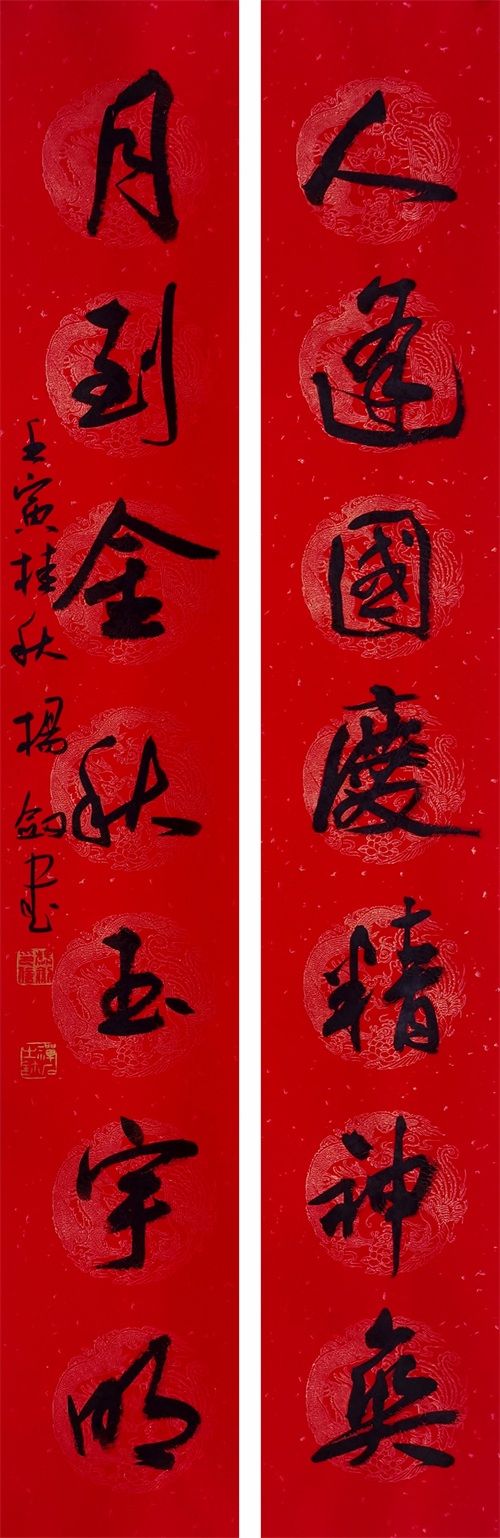 人逢國慶精神爽
月到金秋玉宇明
壬寅桂秋 楊劍書